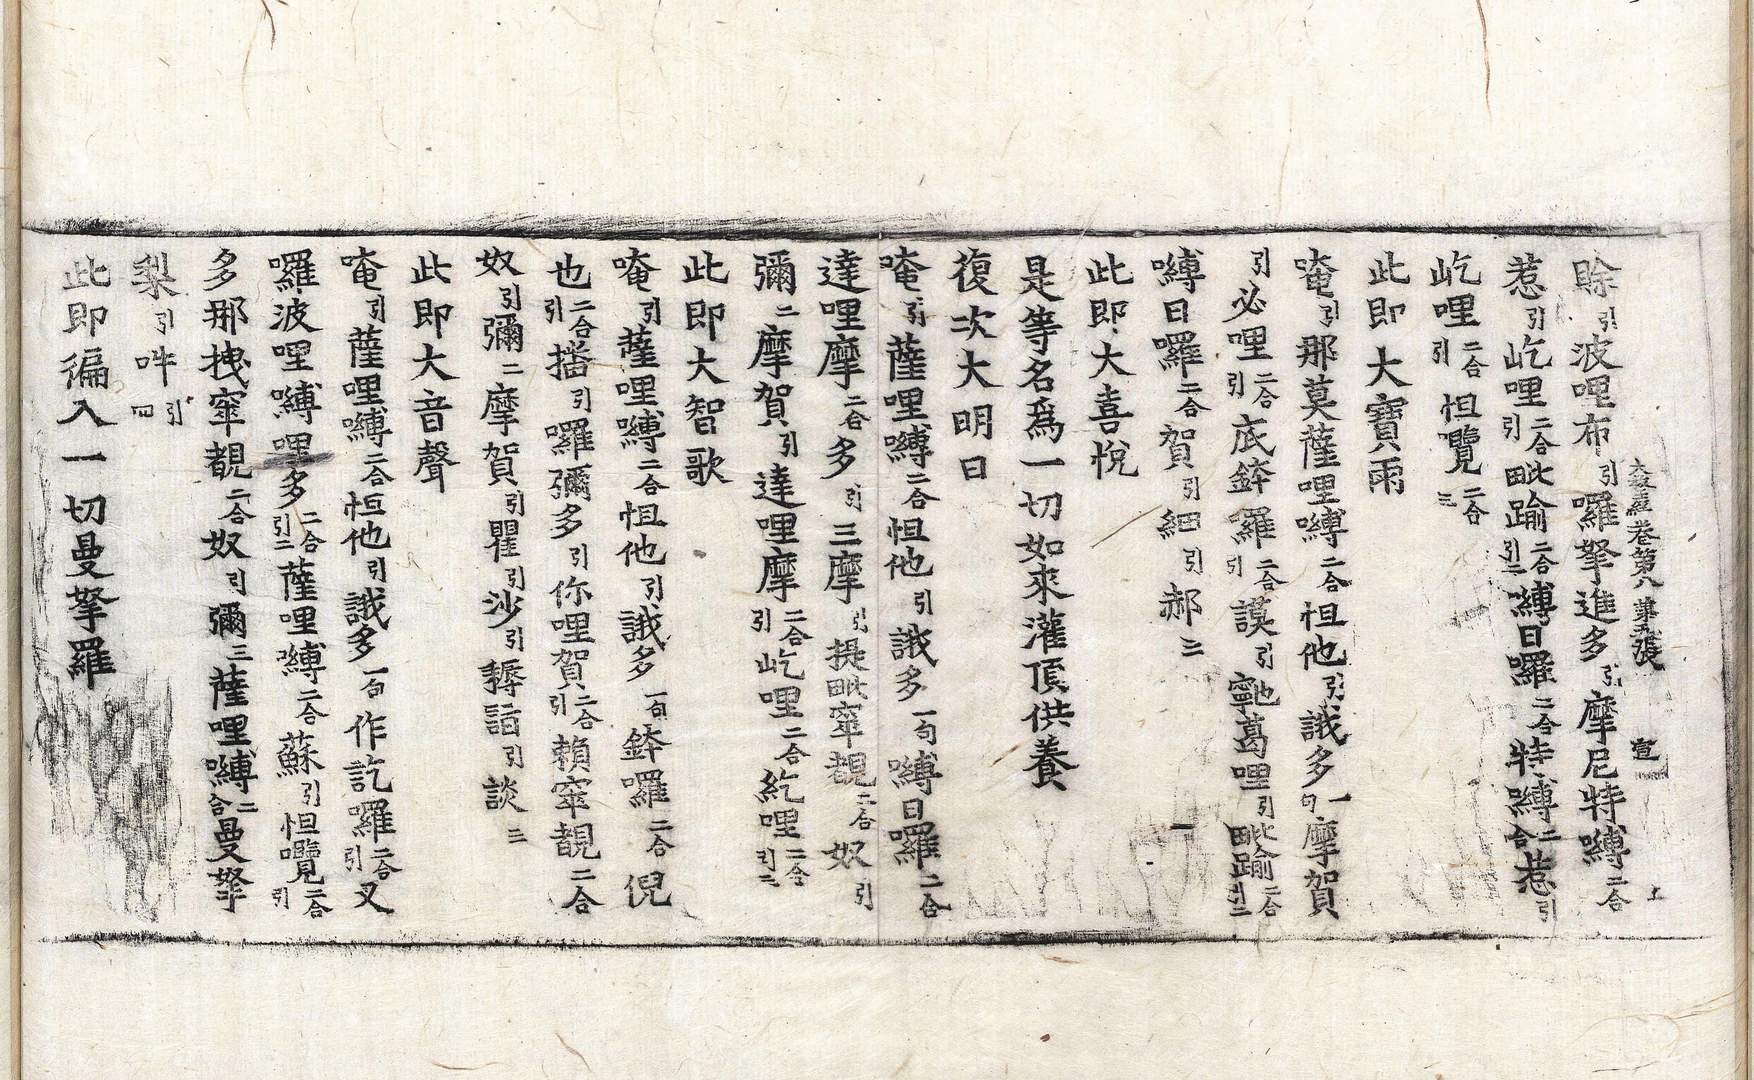 賖引波哩布引囉拏進多引摩尼特嚩二合
惹引屹哩二合引毗踰二合引二嚩日囉二合特嚩二合惹引
屹哩二合引怛覽二合三
此即大寶雨
唵引那莫薩哩嚩二合怛他引誐多一句摩賀
引必哩二合引底鉢囉二合引謨引寧也葛哩引毗踰二合引二
嚩日囉二合賀引細引郝三
此即大喜悅
是等名為一切如來灌頂供養
復次大明曰
唵引薩哩嚩二合怛他引誐多一句嚩日囉二合
達哩摩二合多引三摩引提毗窣覩二合奴引
彌二摩賀引達哩摩二合引屹哩二合紇哩二合引三
此即大智歌
唵引薩哩嚩二合怛他引誐多一句鉢囉二合倪
也二合引播引囉彌多引你哩賀二合引賴窣覩二合
奴引彌二摩賀引瞿引沙引耨誥引談三
此即大音聲
唵引薩哩嚩二合怛他引誐多一句作訖囉二合引叉
囉波哩嚩哩多二合引二薩哩嚩二合蘇引怛囕二合引
多那拽窣覩二合奴引彌三薩哩嚩二合曼拏
梨引吽引四
此即徧入一切曼拏羅
卷第八 第五張 宣